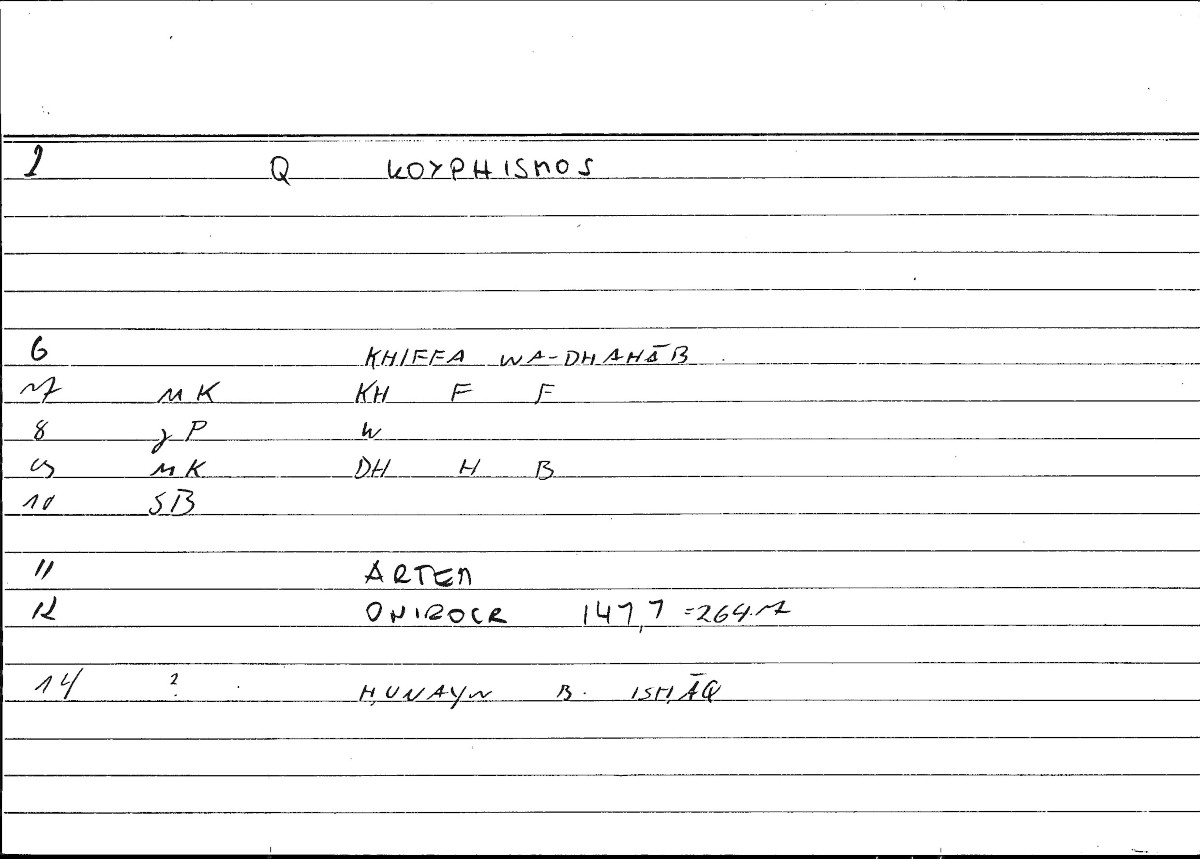 1 Q KOYPHISMOS
6 KHIFFA WA-DHAHĀB
7 MK KH F F
8 γP W
9 MK DH H B
10 SB
11 ARTEM
12 ONIROCR 147,7 =264.7
14 ? ḤUNAYN B. ISḤĀQ